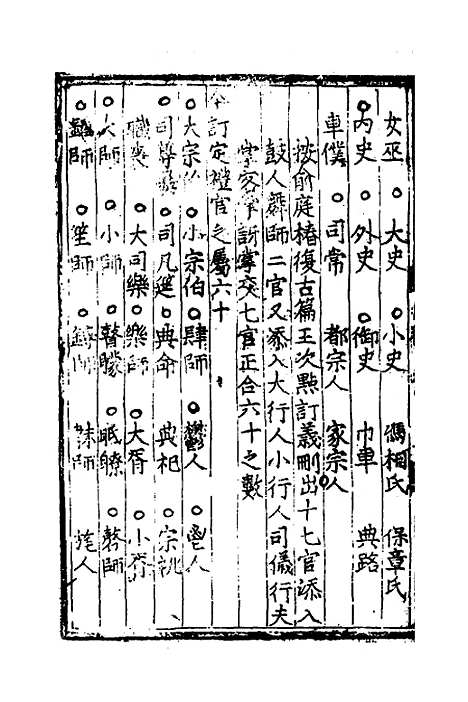 女巫 ○大史 ○小史 馮相氏 保章氏
○內史 ○外史 ○御史 巾車 典路
車僕 ○司常 都宗人 家宗人
按俞庭椿復古篇王次點訂義刪出十七官添入
鼓人舞師二官又添入大行人小行人司儀行夫
掌客掌訝掌交七官正合六十之數
今訂定禮官之屬六十
○大宗伯 ○小宗伯 ○肆師 ○鬱人 ○鬯人
○司尊彝 ○司几筵 ○典命 典祀 ○宗祧
職喪 ○大司樂 ○樂師 ○大胥 ○小胥
○大師 ○小師 ○瞽矇 ○眡瞭 ○磬師
○鍾師 ○笙師 ○鎛師 韎師 旄人